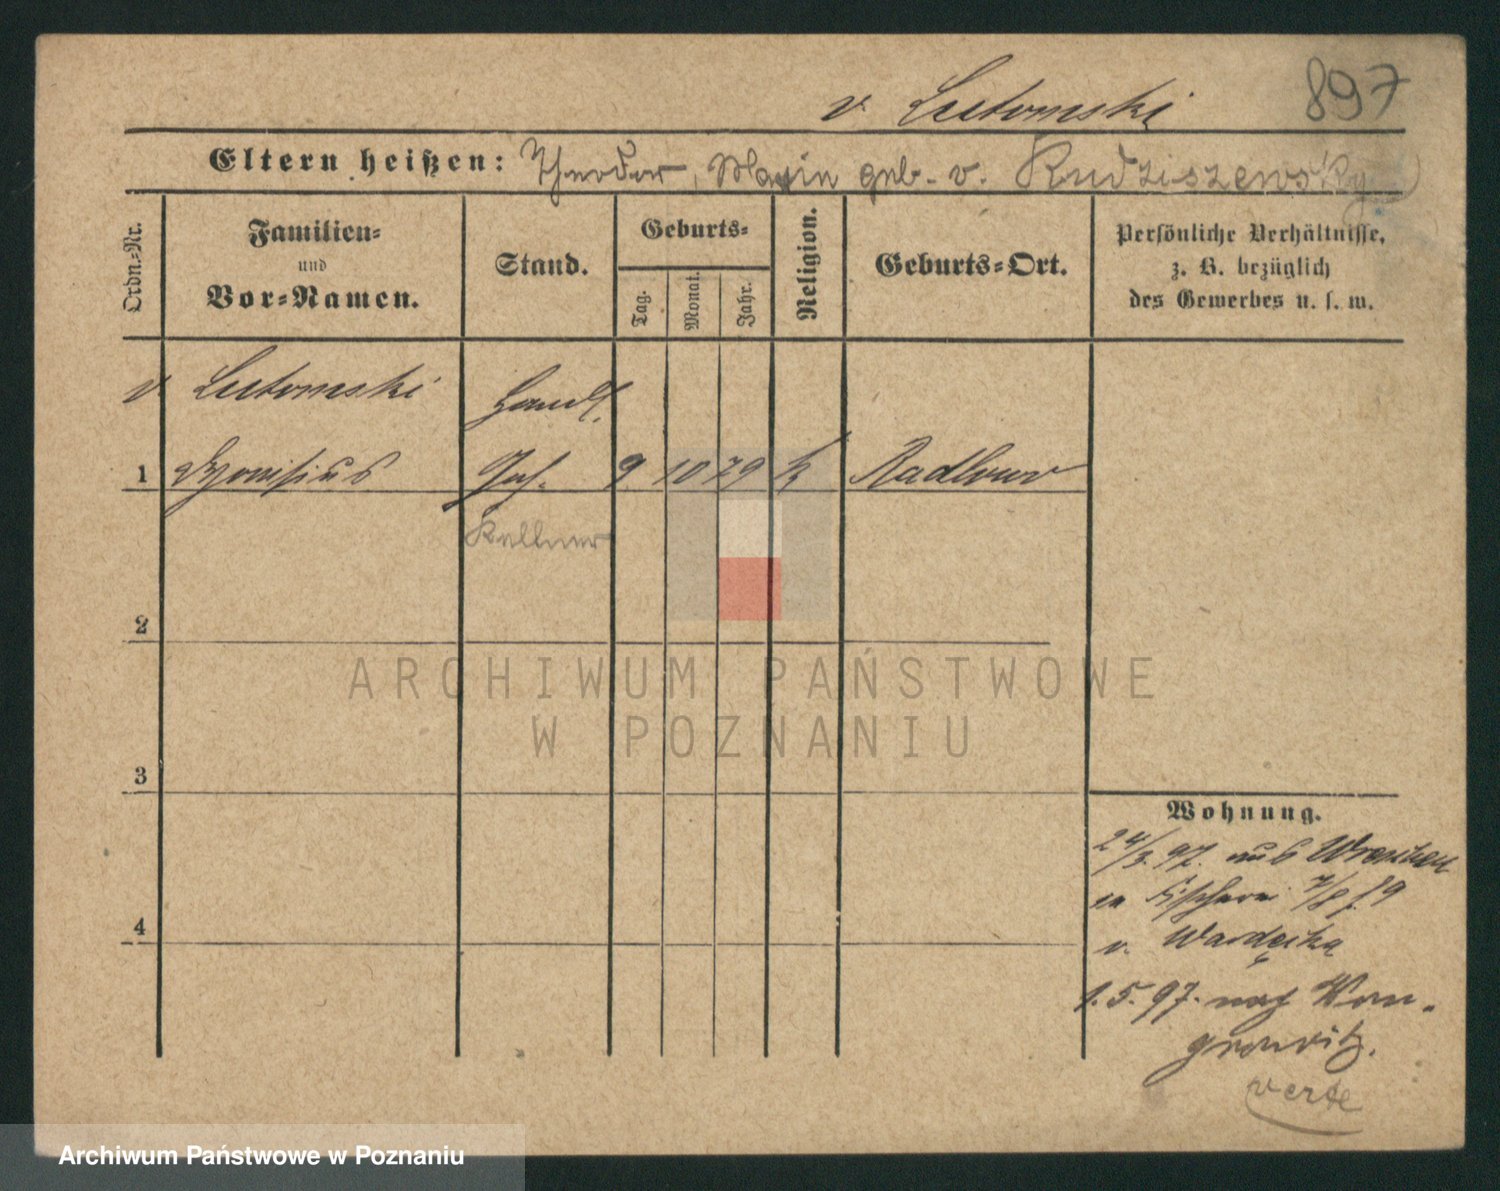 897
v. Lutomski
Eltern heißen: Theodor, Marie geb. v. Rudziszewsky
Ordn.-Nr.
Familien-
und
Vor-Namen.
Stand.
Geburts-
Tag.
Monat.
Jahr.
Religion.
Geburts-Ort.
Persönliche Verhältnisse,
z. B. bezüglich
des Gewerbes u. s. w.
v. Lutomski
Handl.
1 Dyonisius
9 10 79 k Radlow
Kellner
2
ARCHIWUM PAŃSTWOWE
W POZNANIU
3
Wohnung.
24/3. 97. aus Wreschen
Fischerei 7/8
v.
4
1. 5. 97. nach Won-
growitz.
verte
Archiwum Państwowe w Poznaniu